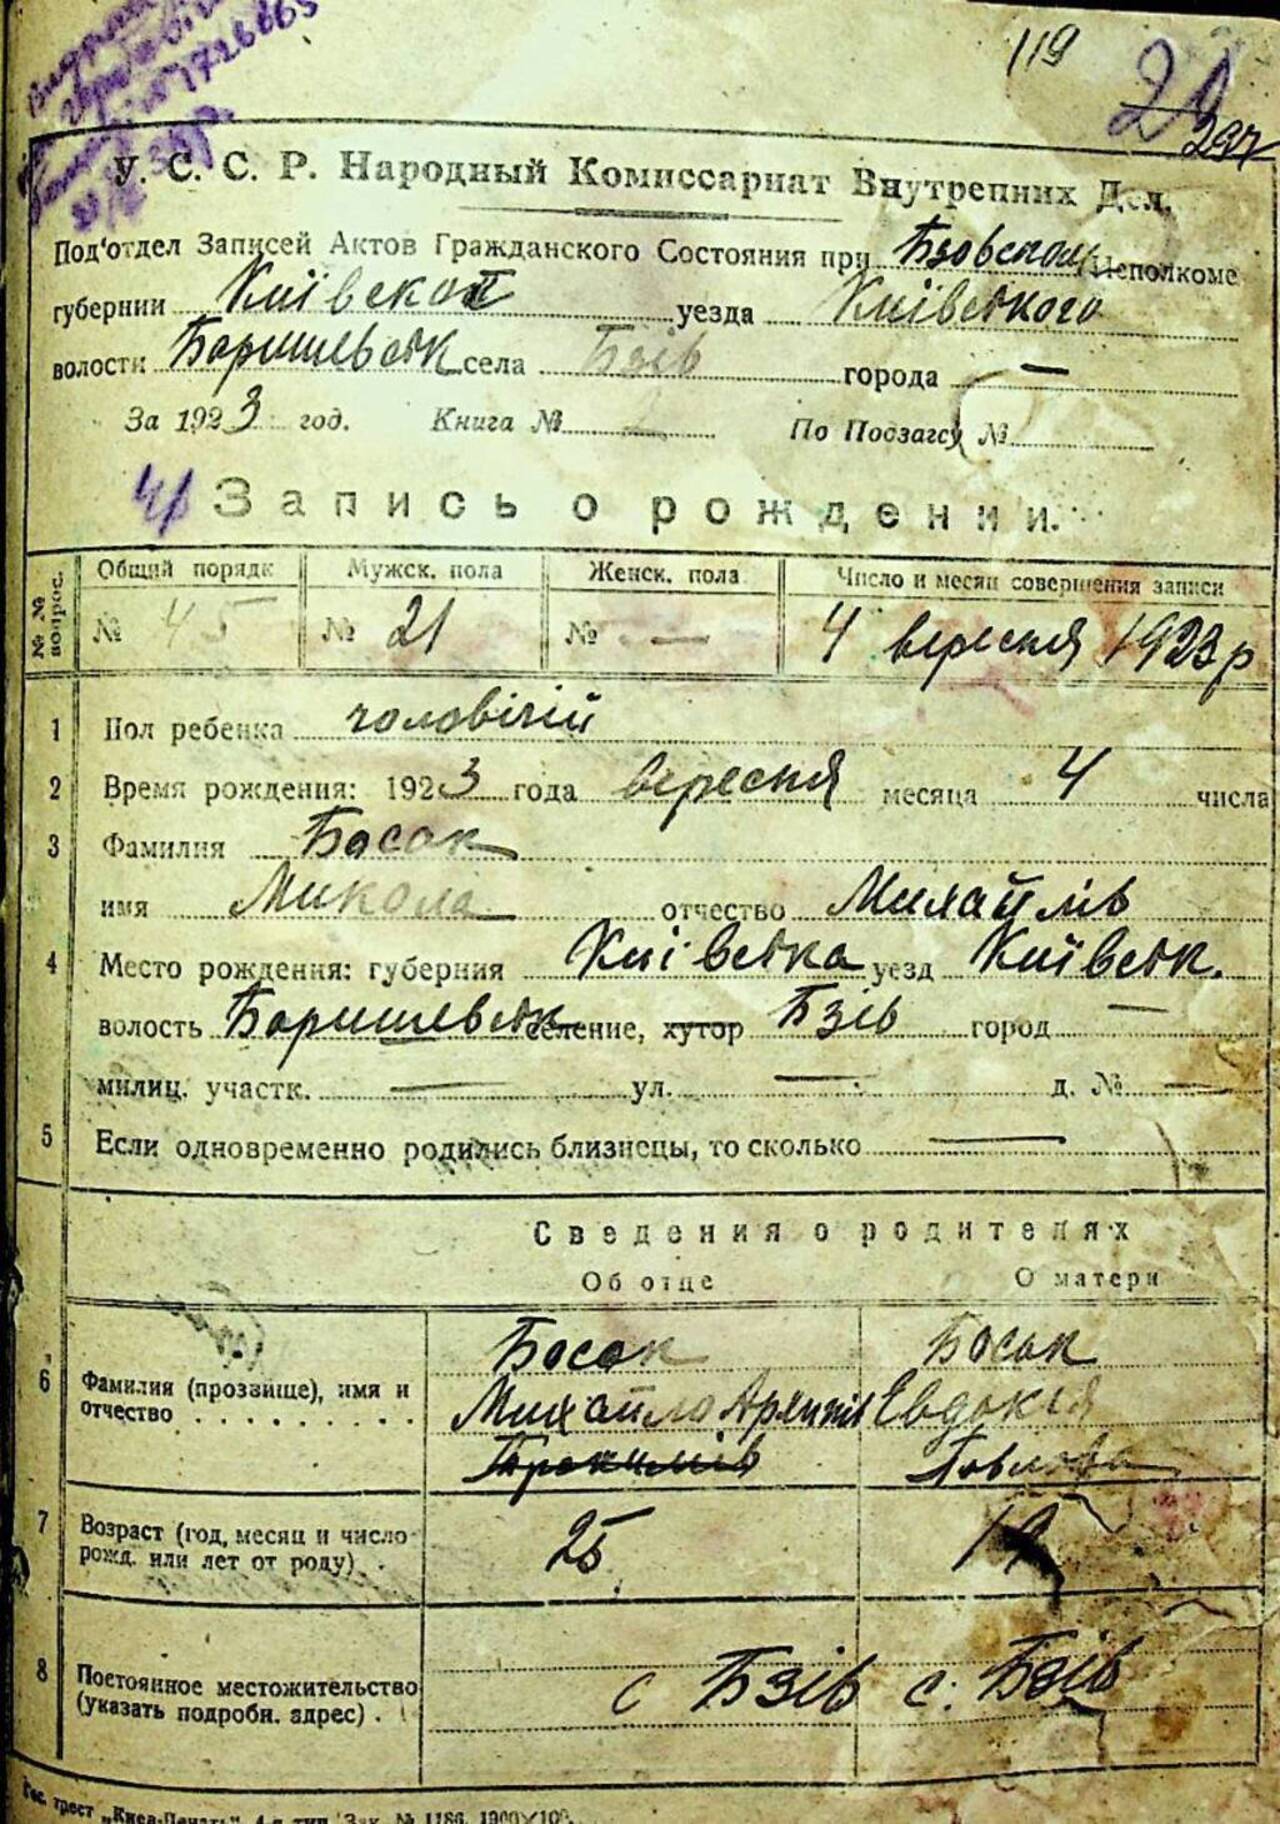 119
297
У. С. С. Р. Народный Комиссариат Внутренних Дел.
Под'отдел Записей Актов Гражданского Состояния при Бзовском Исполкоме
губернии Київской уезда Київського
волости Баришевськ села Бзів города —
За 1923 год. Книга № 2 По Подзагсу №
Запись о рождении.
№№ вопрос. Общий порядк Мужск. пола Женск. пола Число и месяц совершения записи
№ 45 № 21 № — 4 вересня 1923 р
1 Пол ребенка чоловічий
2 Время рождения: 1923 года вересня месяца 4 числа
3 Фамилия Босак
имя Микола отчество Михайлів
4 Место рождения: губерния Київська уезд Київськ.
волость Баришевськ селение, хутор Бзів город —
милиц. участк. — ул. — д. № —
5 Если одновременно родились близнецы, то сколько —
Сведения о родителях
Об отце О матери
Босак Босак
6 Фамилия (прозвище), имя и Михайло Євдокія
отчество . . . . . . . . . . Павлова
7 Возраст (год, месяц и число 25 19
рожд. или лет от роду) .
8 Постоянное местожительство с Бзів с. Бзів
(указать подробн. адрес) .
Гос. трест „Киев-Печать“ 4-я тип. Зак. № 1186. 1900×100.